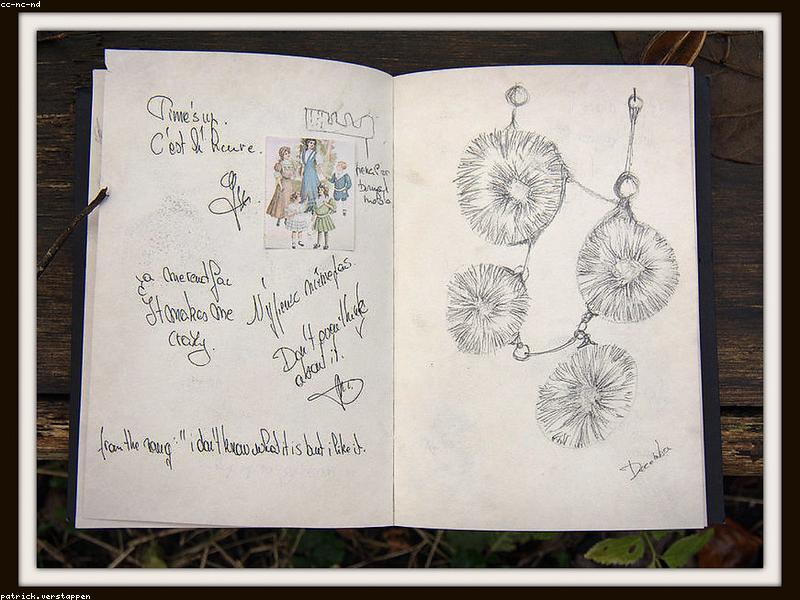 cc-nc-nd
Time's up.
C'est l'heure.
ça me rend
It makes me
crazy.
N'y pense même pas.
Don't even think
about it.
from the song: "i don't know what it is but i like it.
December
patrick.verstappen